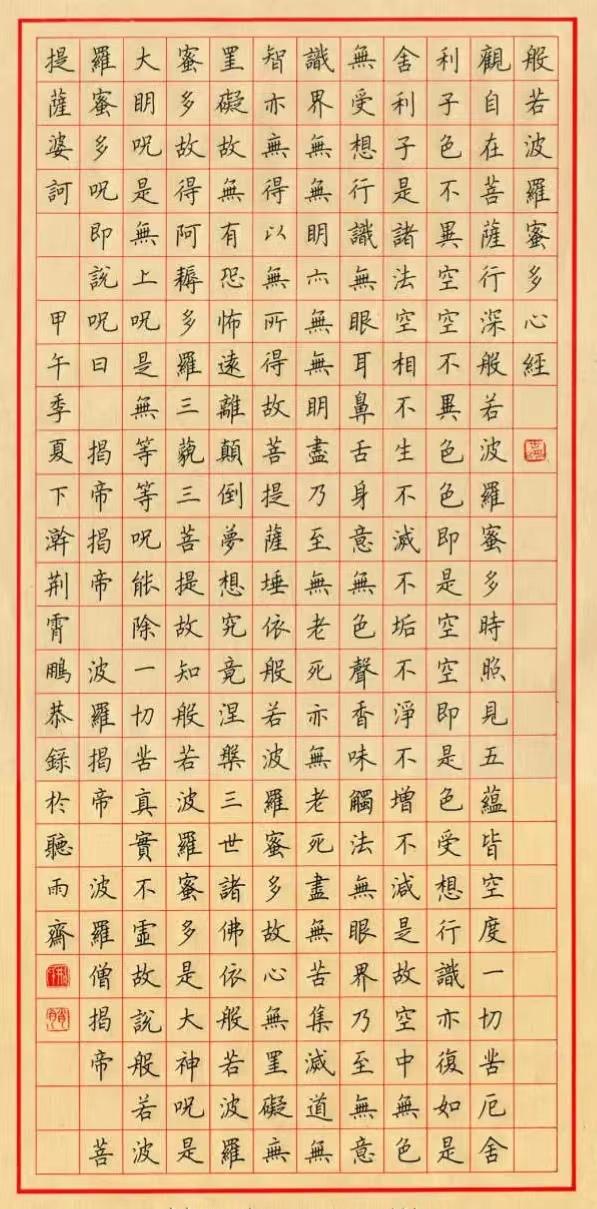 般若波羅蜜多心經
觀自在菩薩行深般若波羅蜜多時照見五蘊皆空度一切苦厄舍
利子色不異空空不異色色即是空空即是色受想行識亦復如是
舍利子是諸法空相不生不滅不垢不淨不增不減是故空中無色
無受想行識無眼耳鼻舌身意無色聲香味觸法無眼界乃至無意
識界無無明亦無無明盡乃至無老死亦無老死盡無苦集滅道無
智亦無得以無所得故菩提薩埵依般若波羅蜜多故心無罣礙無
罣礙故無有恐怖遠離顛倒夢想究竟涅槃三世諸佛依般若波羅
蜜多故得阿耨多羅三藐三菩提故知般若波羅蜜多是大神咒是
大明咒是無上咒是無等等咒能除一切苦真實不虛故說般若波
羅蜜多咒即說咒曰 揭帝揭帝 波羅揭帝 波羅僧揭帝 菩
提薩婆訶 甲午季夏下澣荆霄鵬恭錄於聽雨齋